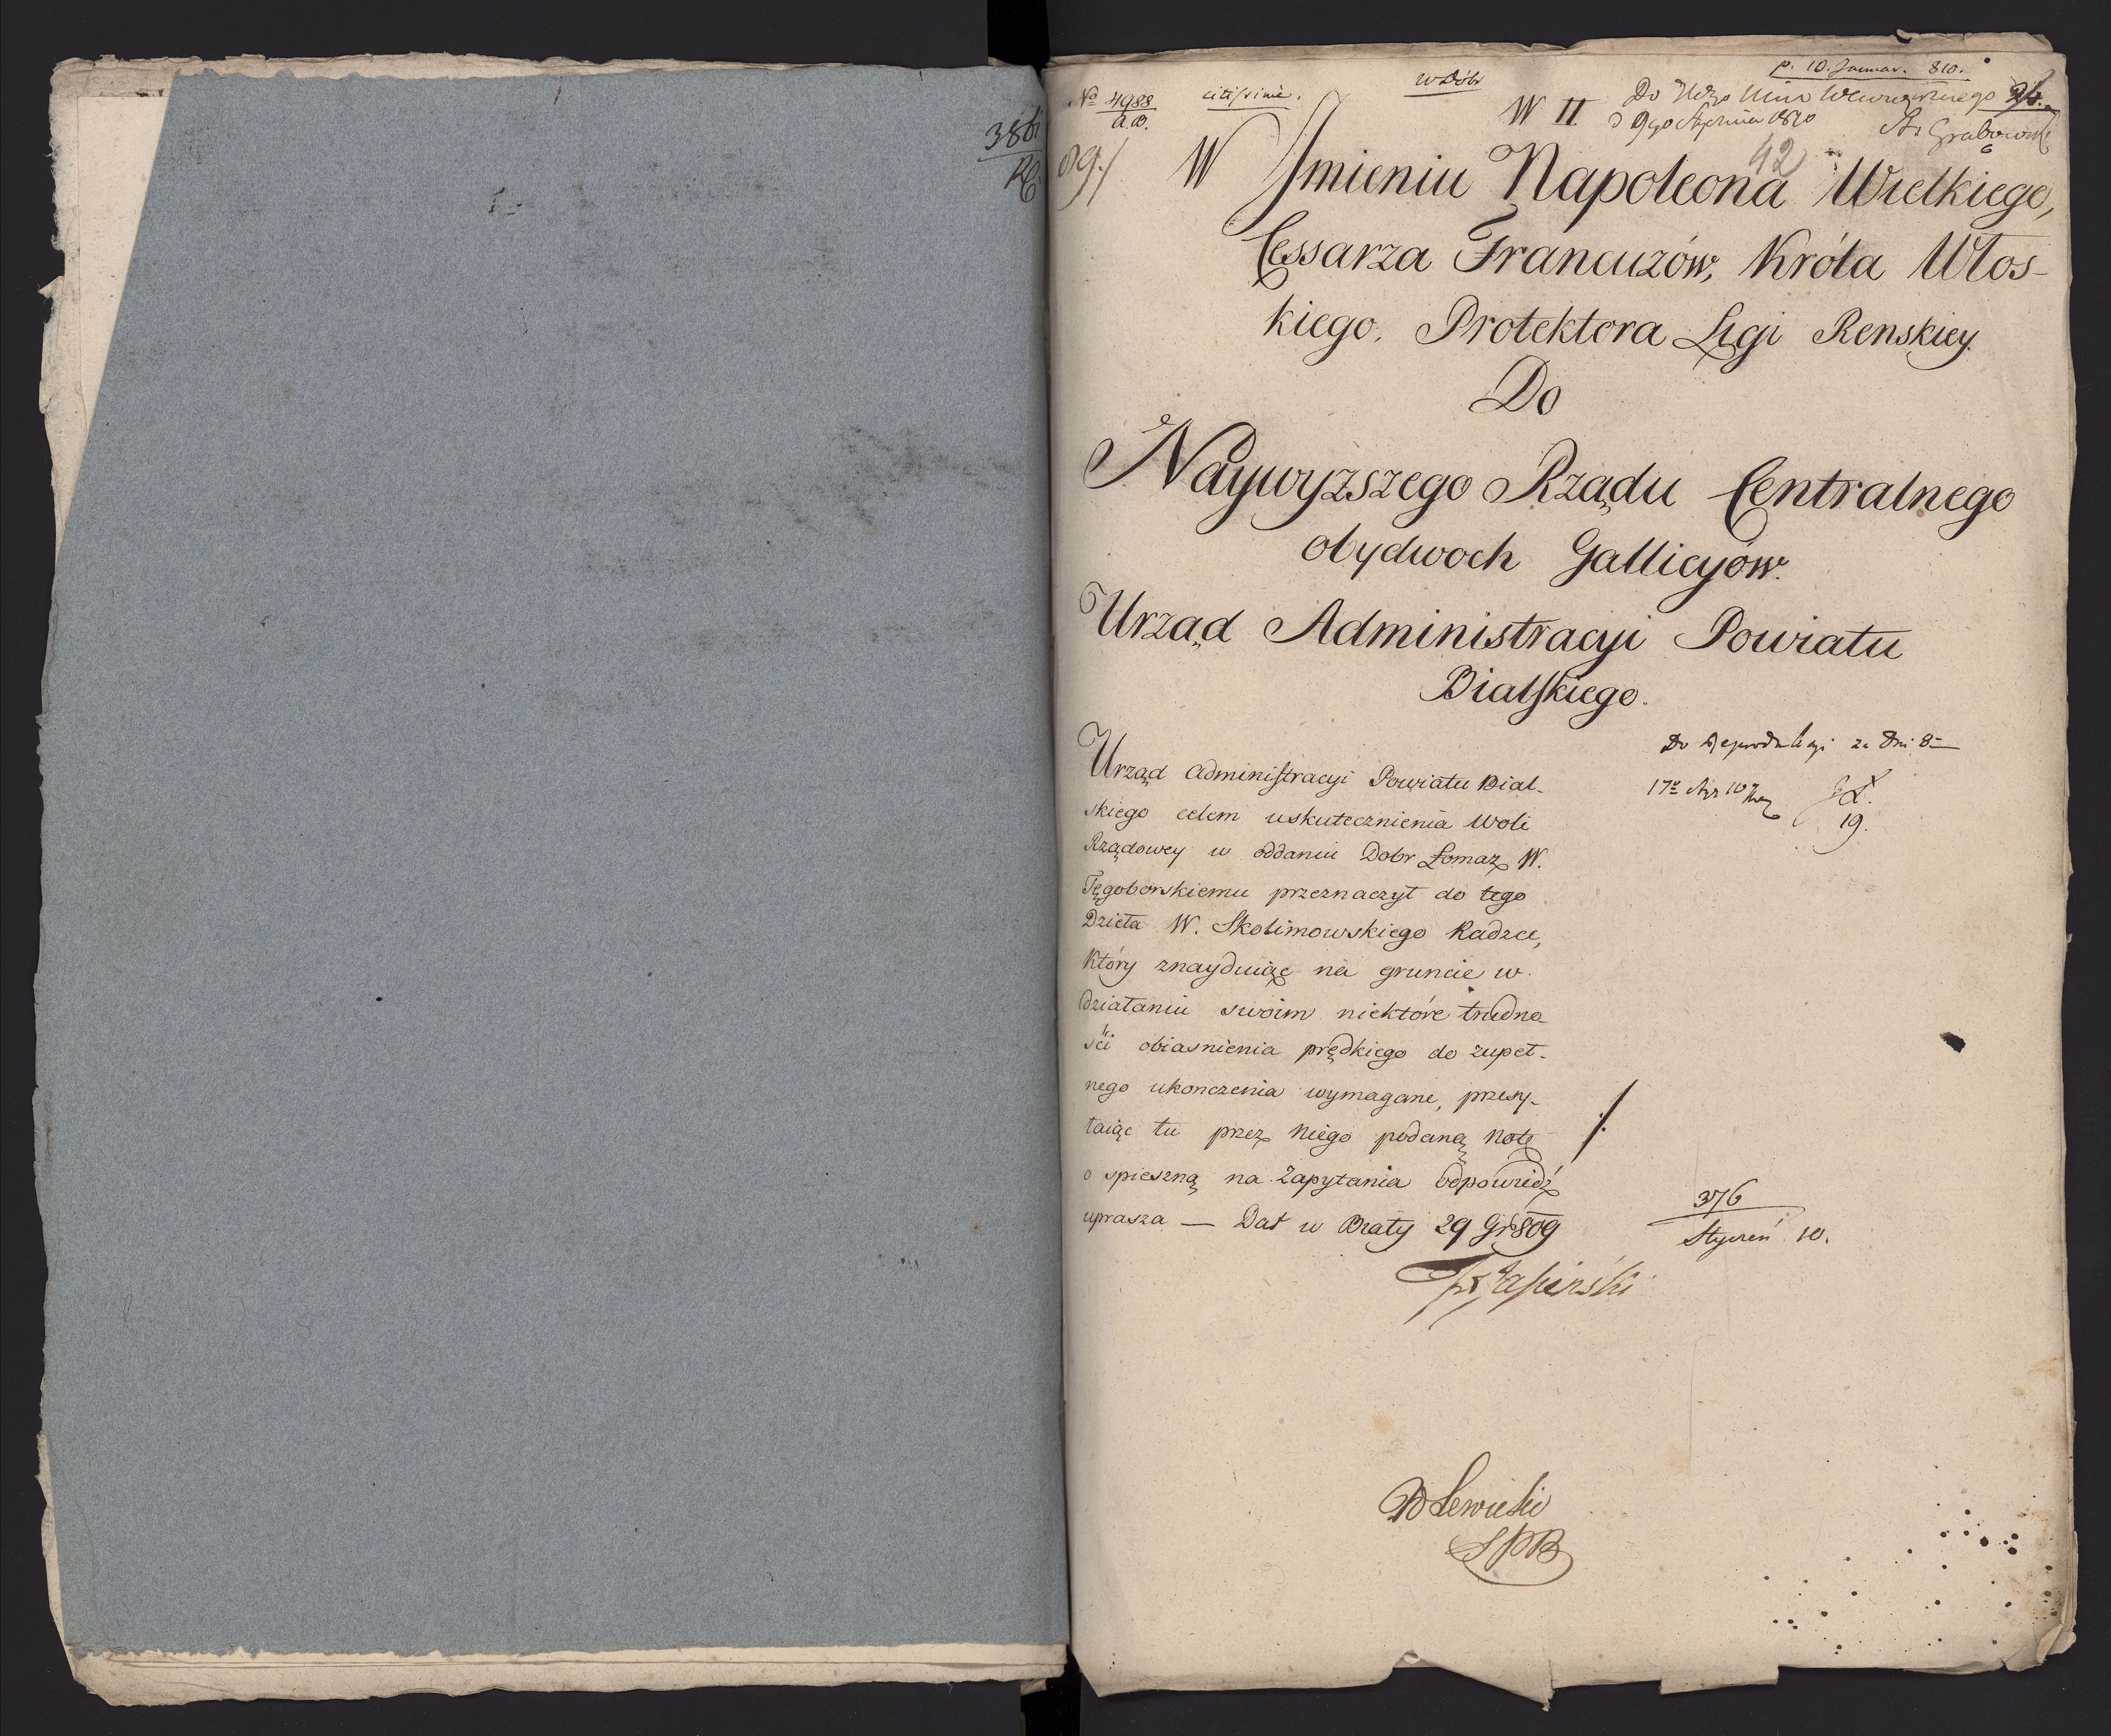 386
p. 10. Januar. 810.
No 4988
citissime.
W Dobr
W II
Do
Grabowski
42
W Jmieniu Napoleona Wielkiego,
Cessarza Francuzów, Króla Włos-
kiego, Protektora Ligi Renskiey.
Do
Naywyższego Rządu Centralnego
obydwoch Gallicyów.
Urząd Administracyi Powiatu
Bialskiego.
Urząd Administracyi Powiatu Bial-
skiego celem uskutecznienia Woli
Rządowey w oddaniu Dobr Łomaz W.
Tęgoborskiemu przeznaczył do tego
Dzieła W. Skolimowskiego Radzcę,
który znayduiąc na gruncie w
działaniu swoim niektóre trudno
ści obiasnienia prędkiego do zupeł-
nego ukonczenia wymagane, przesy-
łaiąc tu przez Niego podaną Notę
o spieszną na Zapytania odpowiedź
uprasza — Dat w Biały 29 Gr 809
Do Reprodukcyi za Dni 8
19.
376
Styczeń 10.
Lewicki
SPB